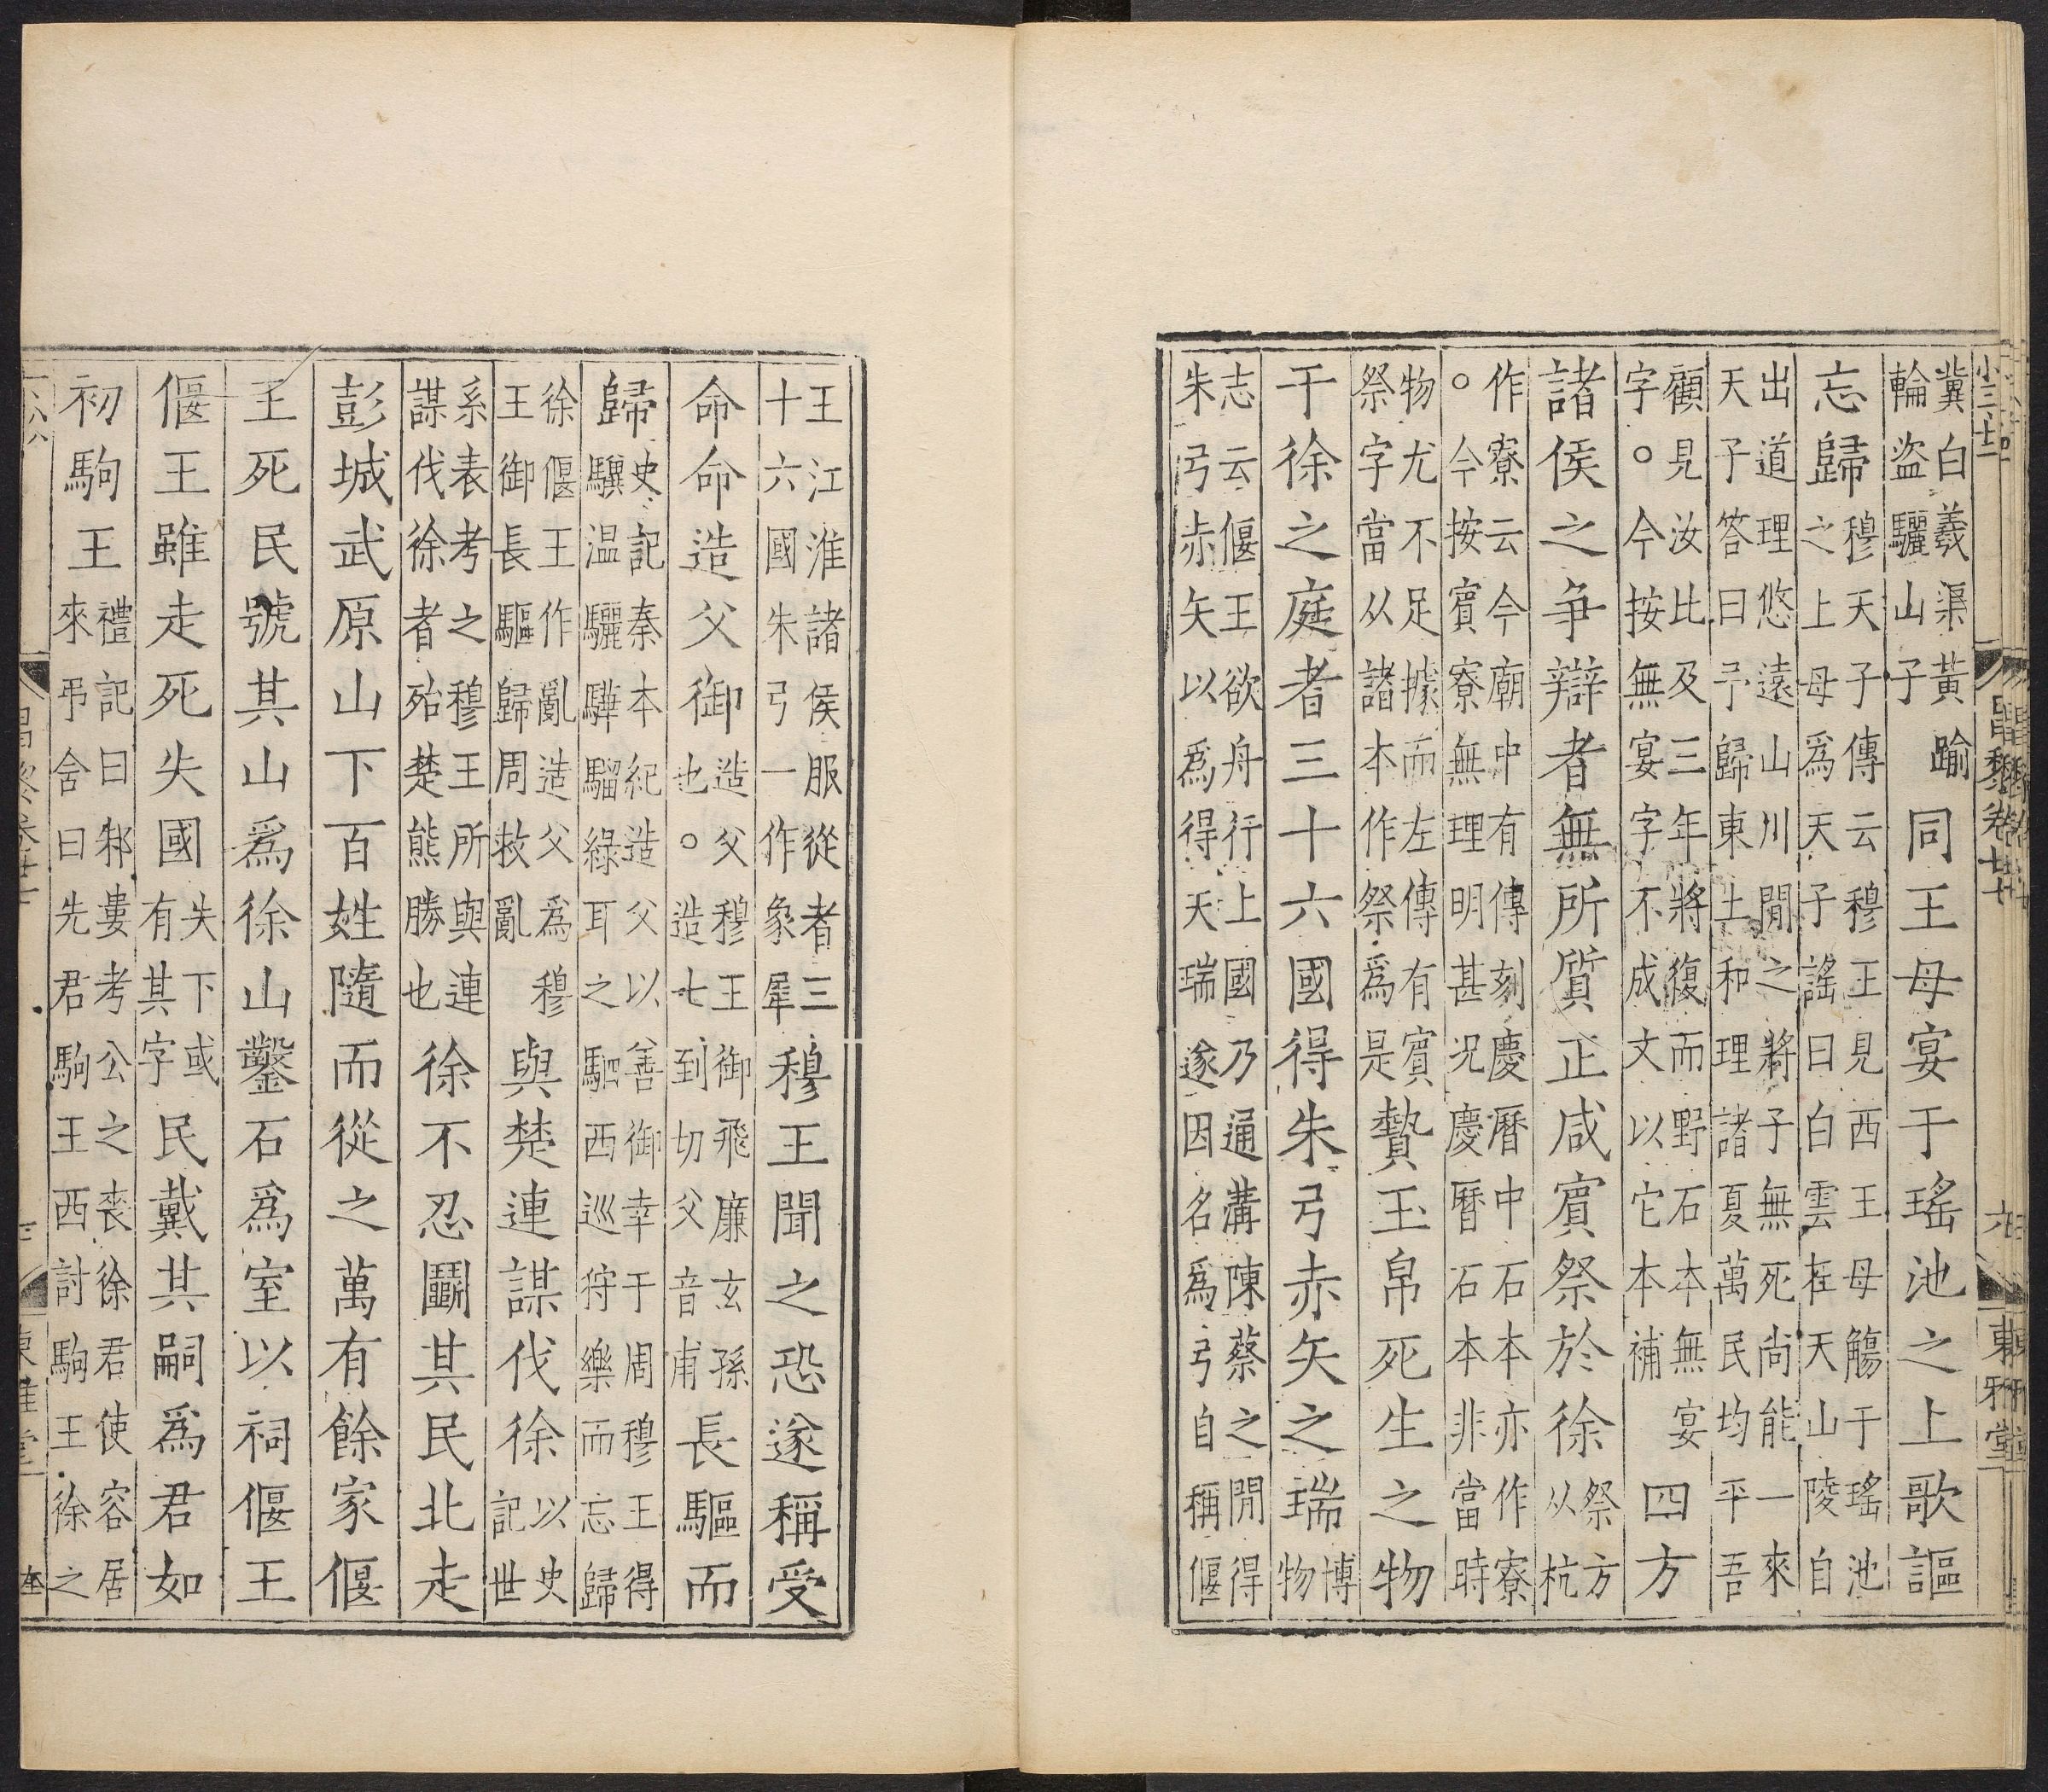 小三十二
昌黎卷廿七
六
東雅堂
冀白羲渠黃踰輪盜驪山子同王母宴于瑤池之上歌謳
忘歸穆天子傳云穆王見西王母觴于瑤池之上母爲天子謠曰白雲在天山陵自
出道理悠遠山川閒之將子無死尚能一來天子答曰予歸東土和理諸夏萬民均平吾
顧見汝比及三年將復而野石本無宴字○今按無宴字不成文以它本補四方
諸侯之爭辯者無所質正咸賓祭於徐祭方从杭
作寮云今廟中有傳刻慶曆中石本亦作寮○今按賓寮無理明甚況慶曆石本非當時
物尤不足據而左傳有賓祭字當从諸本作祭爲是贄玉帛死生之物
于徐之庭者三十六國得朱弓赤矢之瑞博物
志云偃王欲舟行上國乃通溝陳蔡之閒得朱弓赤矢以爲得天瑞遂因名爲弓自稱偃
王江淮諸侯服從者三十六國朱弓一作象犀穆王聞之恐遂稱受
命命造父御造父穆王御飛廉玄孫也○造七到切父音甫長驅而
歸史記秦本紀造父以善御幸于周穆王得驥温驪驊騮綠耳之駟西巡狩樂而忘歸
徐偃王作亂造父爲穆王御長驅歸周救亂與楚連謀伐徐以史記世
系表考之穆王所與連謀伐徐者殆楚熊勝也徐不忍鬭其民北走
彭城武原山下百姓隨而從之萬有餘家偃
王死民號其山爲徐山鑿石爲室以祠偃王
偃王雖走死失國失下或有其字民戴其嗣爲君如
初駒王禮記曰邾婁考公之喪徐君使容居來弔舍曰先君駒王西討駒王徐之